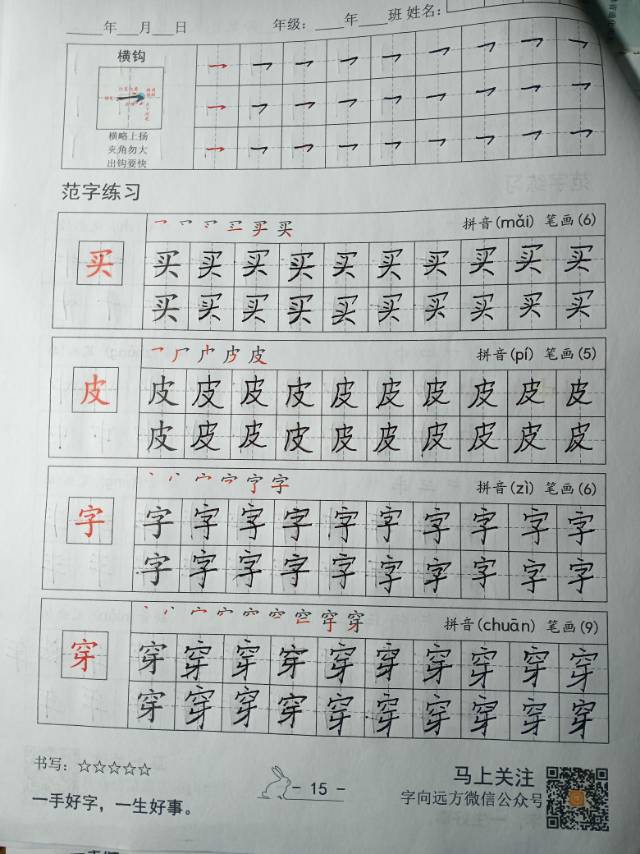 ____年___月___日 年级：____年____班 姓名：
横钩
横略上扬
夹角勿大
出钩要快
范字练习
拼音(mǎi) 笔画(6)
买 买 买 买 买 买 买 买 买 买 买
买 买 买 买 买 买 买 买 买 买
拼音(pí) 笔画(5)
皮 皮 皮 皮 皮 皮 皮 皮 皮 皮 皮
皮 皮 皮 皮 皮 皮 皮 皮 皮 皮
拼音(zì) 笔画(6)
字 字 字 字 字 字 字 字 字 字 字
字 字 字 字 字 字 字 字 字 字
拼音(chuān) 笔画(9)
穿 穿 穿 穿 穿 穿 穿 穿 穿 穿 穿
穿 穿 穿 穿 穿 穿 穿 穿 穿 穿
书写：☆☆☆☆☆
一手好字，一生好事。
- 15 -
马上关注
字向远方微信公众号